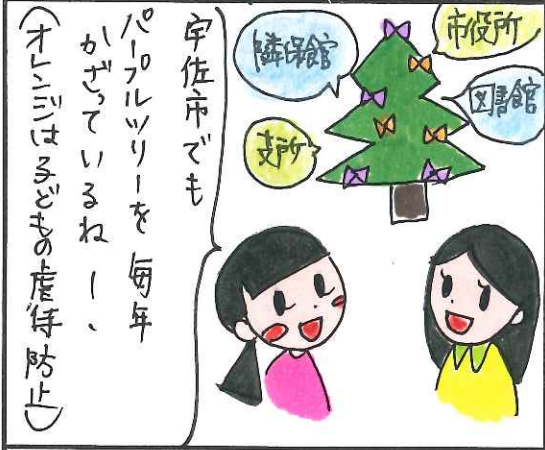 市役所
図書館
隣保館
支所
宇佐市でも
パープルツリーを毎年
かざっているねー、
(オレンジは子どもの虐待防止)